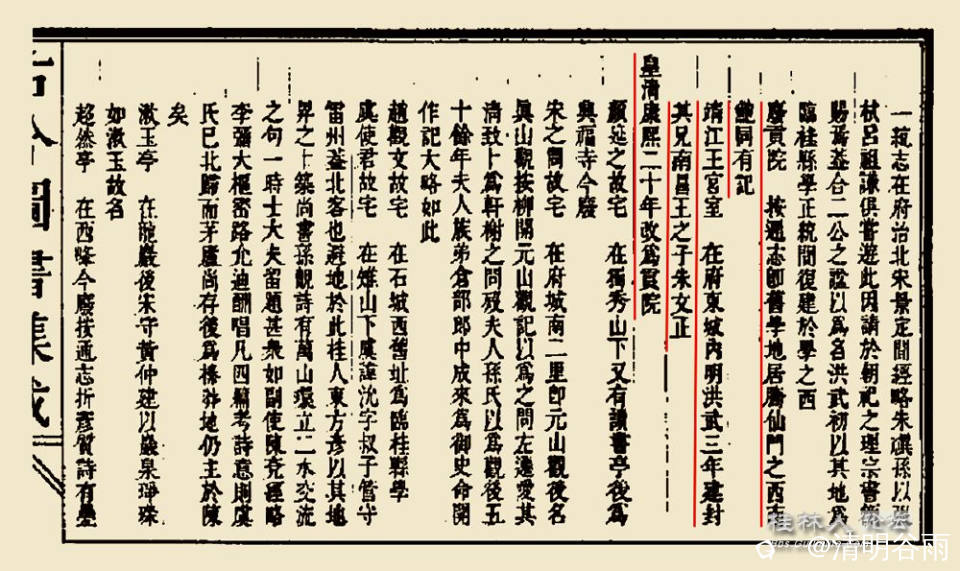 一統志在府治北宋景定間經略朱禩孫以張
栻呂祖謙俱嘗遊此因請於朝祀之理宗書額
賜焉蓋合二公之諡以爲名洪武初以其地爲
臨桂縣學正統間復建於學之西
廢貢院 按通志卽舊學地居勝仙門之西南
鮑同有記
靖江王宮室 在府東城內明洪武三年建封
其兄南昌王之子朱文正
皇清康熙二十年改爲貢院
顏延之故宅 在獨秀山下又有讀書亭後爲
興福寺今廢
宋之問故宅 在府城南二里卽元山觀後名
眞山觀按柳開元山觀記以爲之問左遷愛其
清致上爲軒榭之問歿夫人孫氏以爲觀後五
十餘年夫人族弟倉部郎中成來爲御史命開
作記大略如此
趙觀文故宅 在石城西舊址爲臨桂縣學
虞使君故宅 在雉山下虞諱沈字叔子管守
雷州蓋北客也避地於此桂人東方彥以其地
畀之上築尚書孫覿詩有萬山環立二水交流
之句一時士大夫留題甚衆如副使陳 經略
李彌大樞密路允迪酬唱凡四篇考詩意則虞
氏已北歸而茅廬尚存後爲榛莽地仍主於陳
矣
漱玉亭 在龍巖後宋守黃仲建以巖泉琤琮
如漱玉故名
超然亭 在西峰今廢按通志折彥質詩有疊
古今圖書集成
桂林人论坛
@清明谷雨